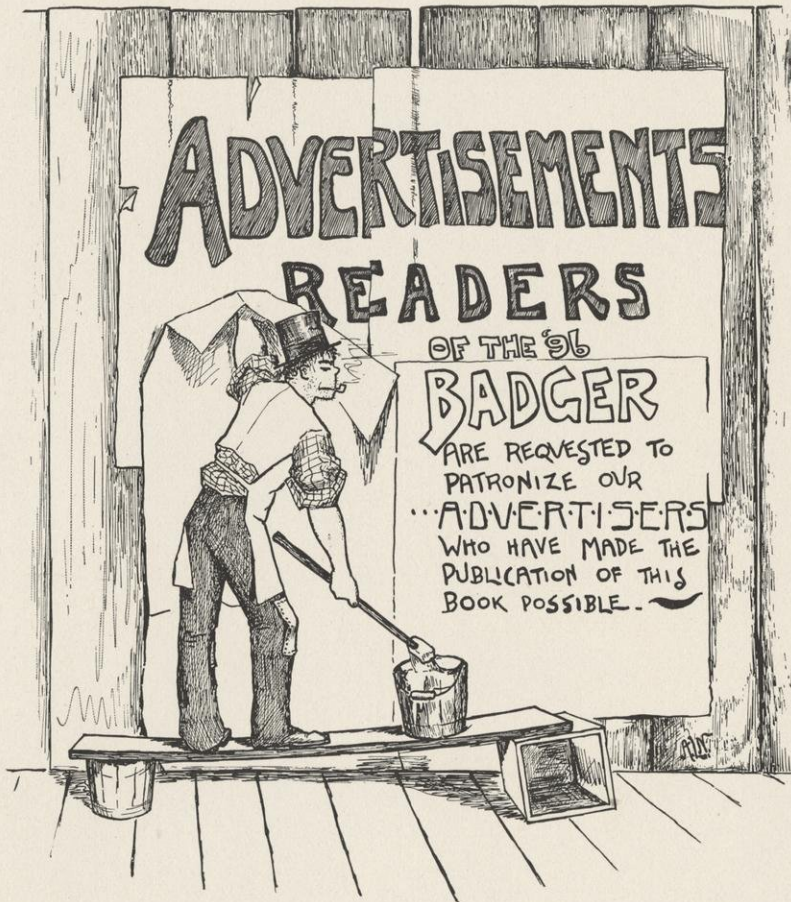 ADVERTISEMENTS
READERS
OF THE '96
BADGER
ARE REQVESTED TO
PATRONIZE OVR
...A·D·V·E·R·T·I·S·E·R·S
WHO HAVE MADE THE
PUBLICATION OF THIS
BOOK POSSIBLE.